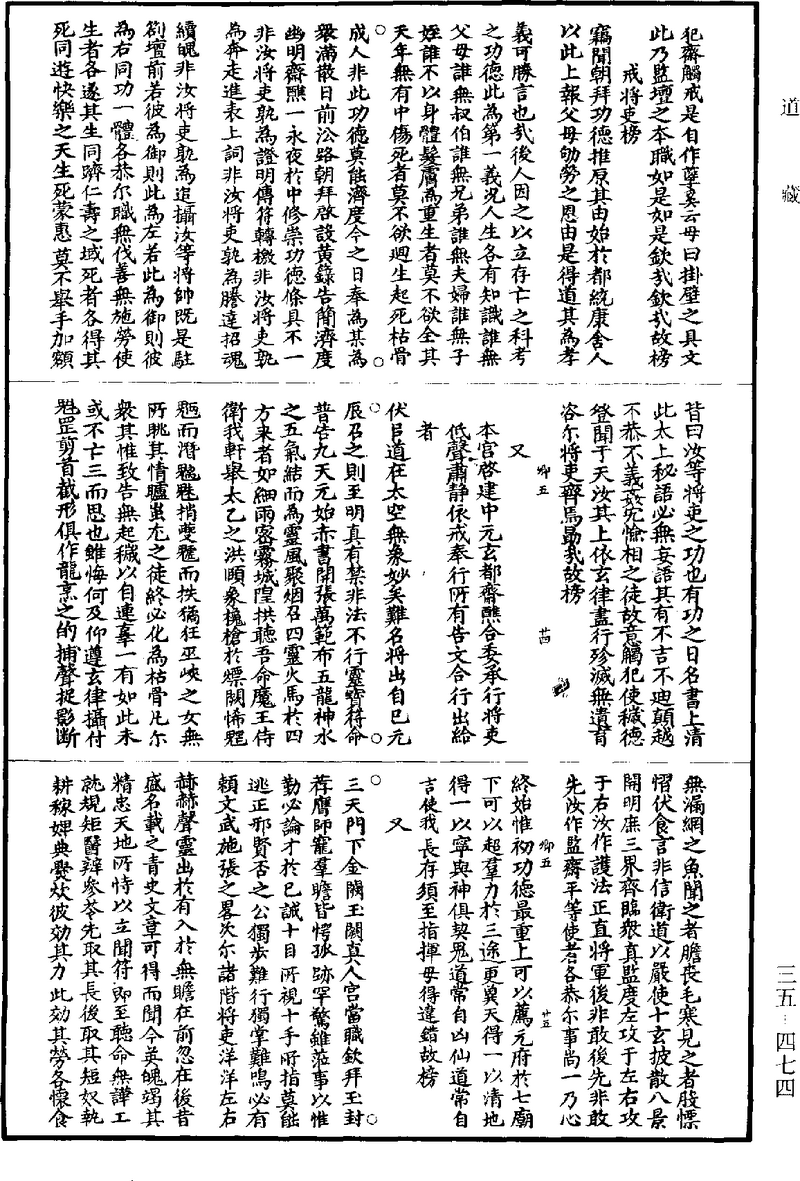 道藏
犯齋觸戒是自作孽奚云毋曰掛壁之具文
此乃監壇之本職如是如是欽哉欽哉故榜
戒將吏榜
竊聞朝拜功德推原其由始於都統康舍人
以此上報父母劬勞之恩由是得道其為孝
義可勝言也哉後人因之以立存亡之科考
之功德此為第一義況人生各有知識誰無
父母誰無叔伯誰無兄弟誰無夫婦誰無子
姪誰不以身體髮膚為重生者莫不欲全其
天年無有中傷死者莫不欲迴生起死枯骨
成人非此功德莫能濟度今之日奉為某為○
衆滿散日前沿路朝拜啓設黃籙告簡濟度
幽明齋醮一永夜於中修崇功德條具不一
非汝將吏孰為證明傳符轉檄非汝將吏孰
為奔走進表上詞非汝將吏孰為騰達招魂
續魄非汝將吏孰為追攝汝等將帥既是駐
劄壇前若彼為御則此為左若此為御則彼
為右同功一體各恭尔職無伐善無施勞使
生者各遂其生同躋仁壽之域死者各得其
死同遊快樂之天生死蒙惠莫不舉手加額
皆曰汝等將吏之功也有功之日名書上清
此太上秘語必無妄語其有不吉不迪顛越
不恭不義姦宄憸相之徒故意觸犯使穢德
登聞于天汝其上依玄律盡行殄滅無遺育
咨尔將吏齊焉勗哉故榜
卿五 廿四
又
本宮啓建中元玄都齋醮合委承行將吏
低聲肅静依戒奉行所有告文合行出給
者
伏㠯道在太空無象妙矣難名將出自巳元
○辰召之則至明真有禁非法不行靈寶符命○
普告九天元始赤書開張萬範布五龍神水
之五氣結而為靈風聚烟召四靈火馬於四
方来者如細雨密霧城隍拱聽吾命魔王侍
衛我軒舉太乙之洪頤象攙槍於熛闕怖
而潛捎夔而抶獝狂巫峽之女無
所眺其情驢蚩尤之徒終必化為枯骨凡尔
衆其惟致告無起穢以自連辜一有如此未
或不亡三而思也雖悔何及仰遵玄律攝付
魁罡剪首截形俱作龍烹之的捕聲捉影斷
無漏網之魚聞之者膽喪毛寒見之者股慄
慴伏食言非信衛道以嚴使十玄披散八景
開明庶三界齊臨衆真監度左攻于左右攻
于右汝作護法正直將軍後非敢後先非敢
先汝作監齋平等使者各恭尔事尚一乃心
卿五 廿五
終始惟初功德最重上可以薦元府於七廟
下可以超羣力於三途更冀天得一以清地
得一以寧與神俱契鬼道常自凶仙道常自
言使我長存須至指揮毋得違錯故榜
又
○三天門下金闕玉闕真人宮當職欽拜玉封○
荐膺師寵羣瞻皆愕孤跡罕驚雖蒞事以惟
勤必論才於已誠十目所視十手所指莫能
逃正邪賢否之公獨步難行獨掌難鳴必有
頼文武施張之畧次尔諸階將吏洋洋左右
赫赫聲靈出於有入於無瞻在前忽在後昔
盛名載之青史文章可得而聞今英魄竭其
精忠天地所恃以立聞符即至聽命無譁工
就規矩醫辨參苓先取其長後取其短奴執
耕稼婢典爨炊彼効其力此効其勞各懷食
三五—四七四